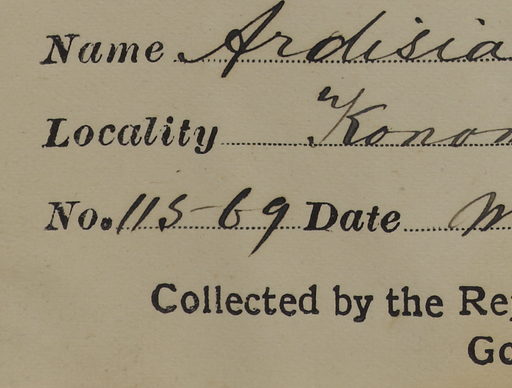 Name Ardisia
Locality
No. 11569 Date
Collected by the Re
Go